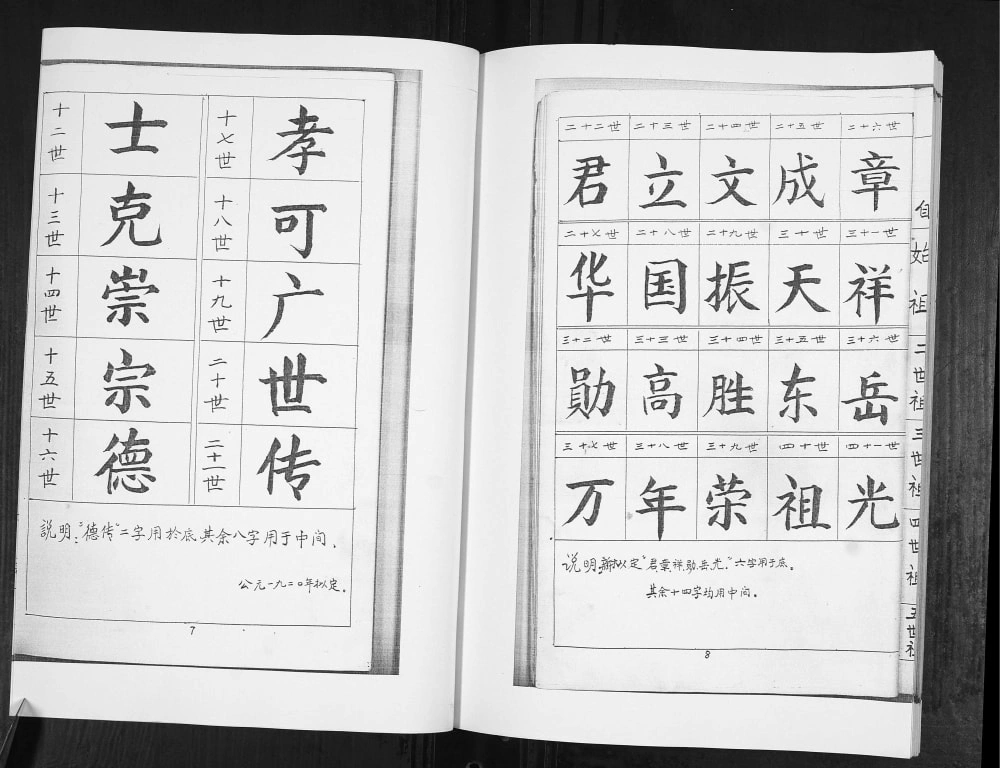 十二世 士
十三世 克
十四世 崇
十五世 宗
十六世 德
十七世 孝
十八世 可
十九世 广
二十世 世
二十一世 传
説明："德传"二字用於底其余八字用于中间．
公元一九二0年拟定．
7
二十二世 二十三世 二十四世 二十五世 二十六世
君 立 文 成 章
二十七世 二十八世 二十九世 三十世 三十一世
华 国 振 天 祥
三十二世 三十三世 三十四世 三十五世 三十六世
勋 高 胜 东 岳
三十七世 三十八世 三十九世 四十世 四十一世
万 年 荣 祖 光
説明：新拟定"君章祥．勋．岳．光．"六字用于底。
其余十四字均用中间。
8
始
祖
二世祖
三世祖
四世祖
五世祖